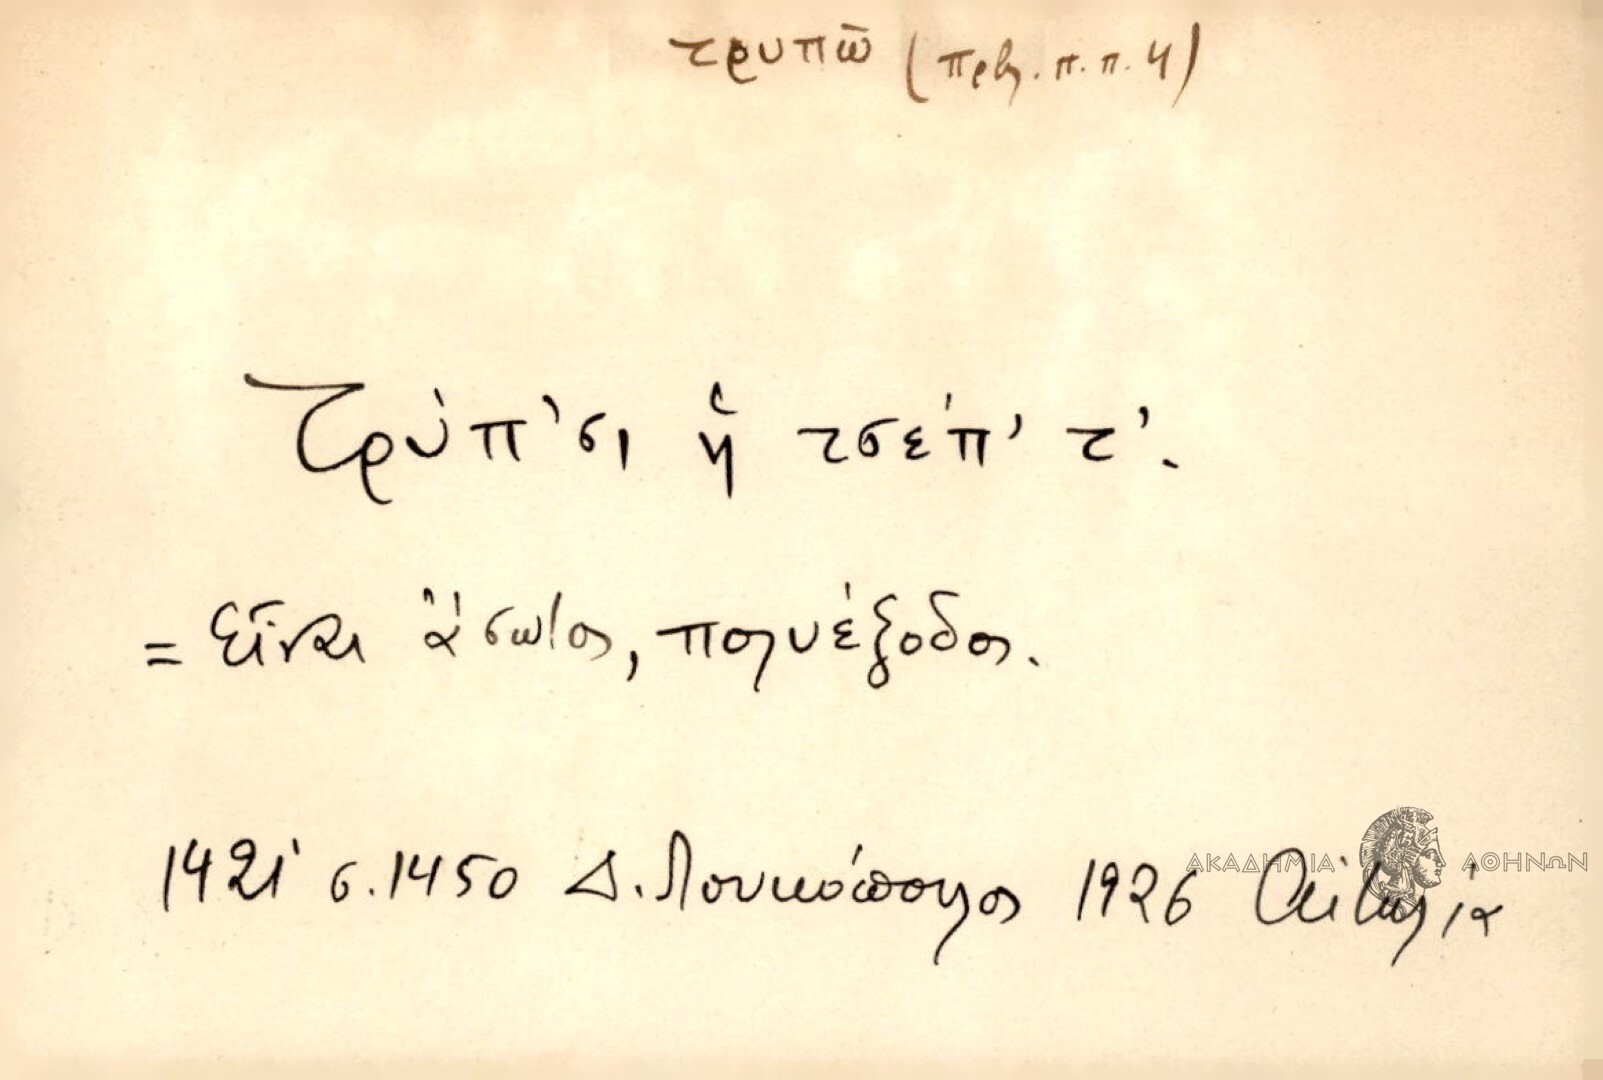 τρυπῶ (πρβ. π. π. 4)
Τρύπ'σι ἡ τσέπ' τ'.
= Εἶναι ἄσωτος, πολυέξοδος.
1421 σ. 1450 Δ. Λουκόπουλος 1926 Αἰτωλία
ΑΚΑΔΗΜΙΑ ΑΘΗΝΩΝ